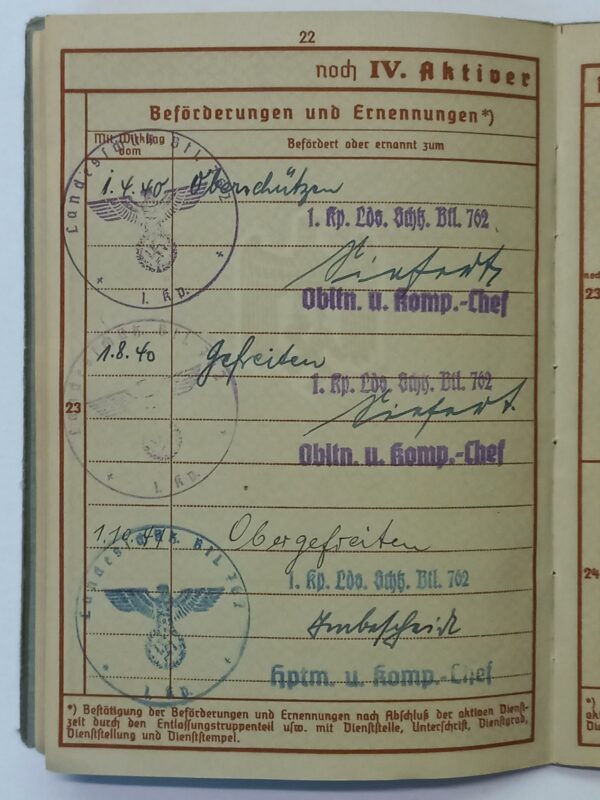 22
noch IV. Aktiver
Beförderungen und Ernennungen*)
Mit Wirkung vom
Befördert oder ernannt zum
1.4.40 Oberschützen
1. Kp. Lds. Schtz. Btl. 762
Siefert
Obltn. u. Komp.-Chef
Landesschtz. Btl. 762
1. Kp.
1.8.40 Gefreiten
1. Kp. Lds. Schtz. Btl. 762
Siefert
Obltn. u. Komp.-Chef
23
1. Kp.
1.10.41 Obergefreiten
1. Kp. Lds. Schtz. Btl. 762
Imbescheidt
Hptm. u. Komp.-Chef
1. Kp.
*) Bestätigung der Beförderungen und Ernennungen nach Abschluß der aktiven Dienst-
zeit durch den Entlassungstruppenteil usw. mit Dienststelle, Unterschrift, Dienstgrad,
Dienststellung und Dienststempel.
23
24